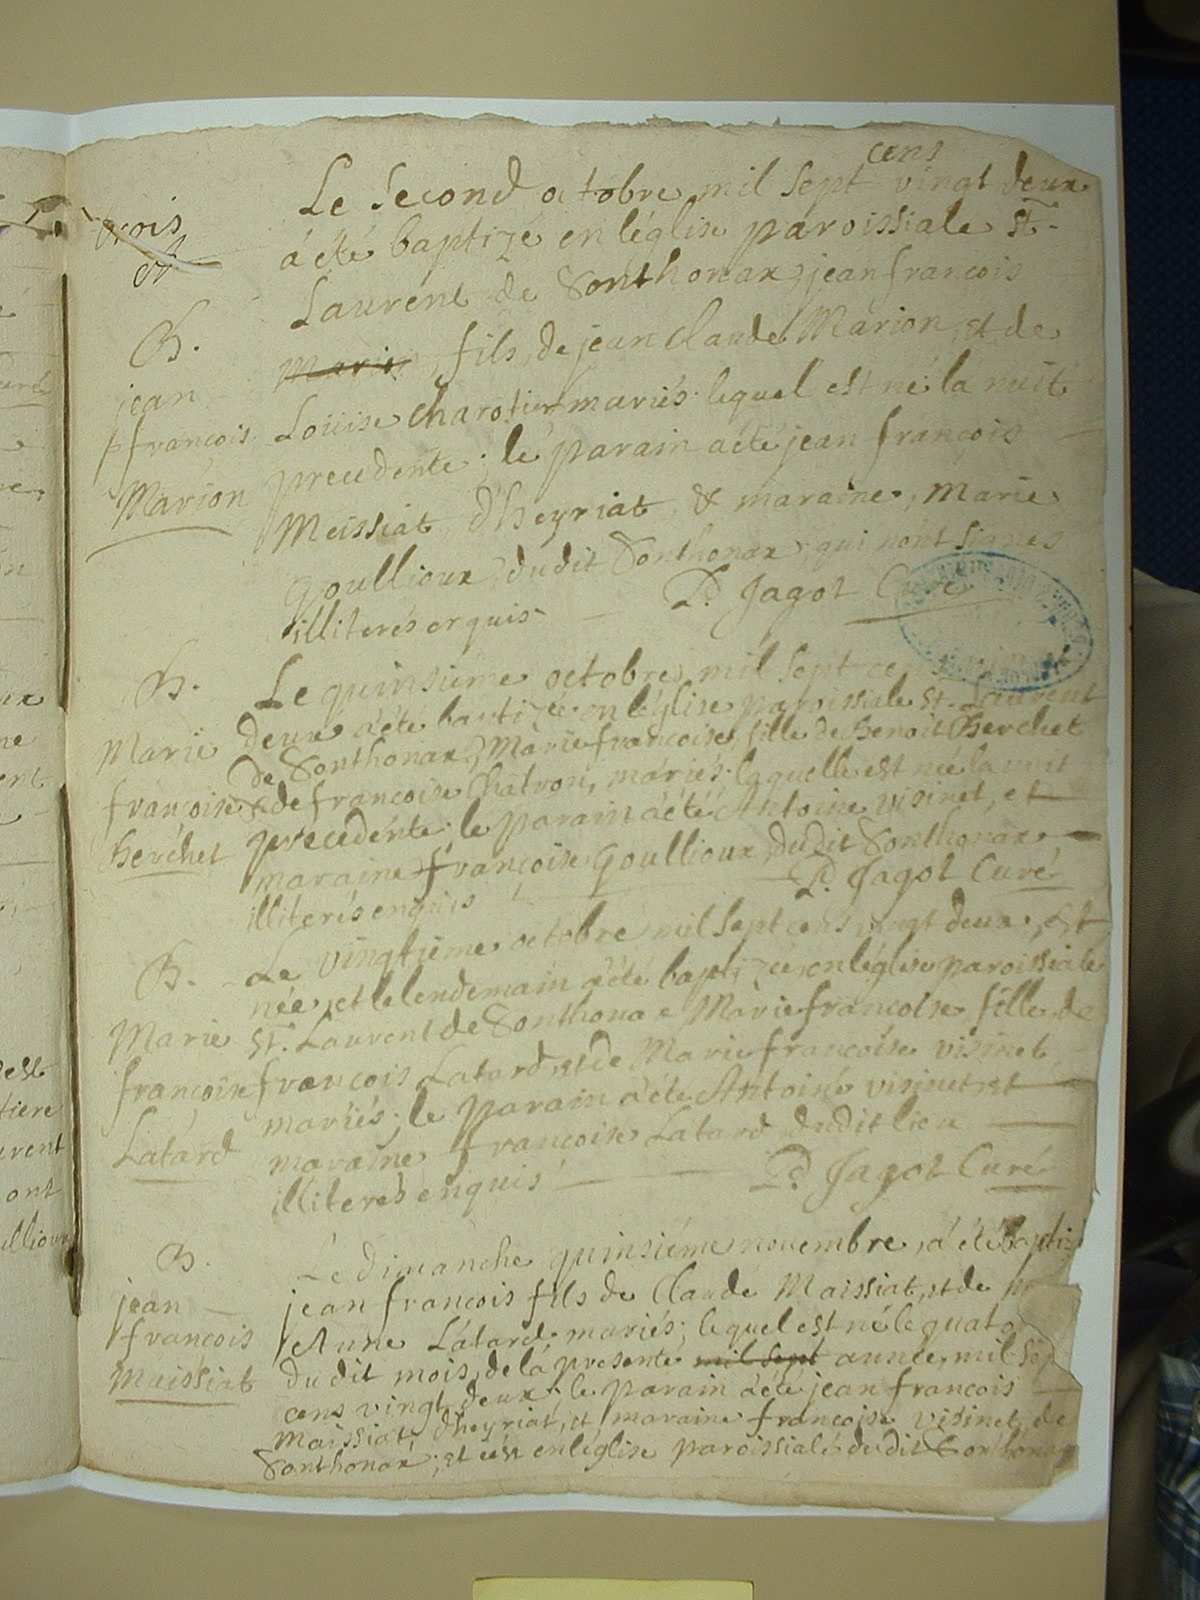 Le second octobre mil sept cens vingt deux
a été baptizé en léglise paroissiale st.
Laurent de Sonthonax, jean francois
Marion, fils de jean claude Marion, et de
Loüise charotier mariés. lequel est né la nuit
precedente; le parain a été jean francois
Meissiat d'heyriat, & maraine, Marie
Goullioux dudit Sonthonax, qui n'ont signés
illiterés enquis
P. Jagot Curé
B.
jean
francois
Marion
Le quinsiéme octobre mil sept cens
deux a été baptizée en léglise paroissiale st. Laurent
de Sonthonax, Marie francoise, fille de Benoit Berchet
& de francoise Chatron, mariés. laquelle est née la nuit
precedente; le parain a été Antoine visinet, et
maraine francoise Goullioux dudit Sonthonax
illiterés enquis
P. Jagot Curé
B.
Marie
francoise
Berchet
Le vingtiéme octobre mil sept cens vingt deux, est
née, et le lendemain a été baptizée en léglise paroissiale
st. Laurent de Sonthonax Marie francoise fille de
francois Latard, et de Marie francoise visinet
mariés; le parain a été Antoine visinet, et
maraine francoise Latard dudit lieu
illiterés enquis
P. Jagot Curé
B.
Marie
francoise
Latard
Le dimanche quinsiéme novembre, a été baptizé
jean francois fils de Claude Maissiat, et de
Anne Latard mariés; lequel est né le quato
dudit mois, de la presente mil sept année, mil sept
cens vingt deux; le parain a été jean francois
Maissiat d'heyriat, et maraine francoise visinet, de
Sonthonax; et c'est en léglise paroissiale dudit Sonthonax
B.
jean
francois
Maissiat